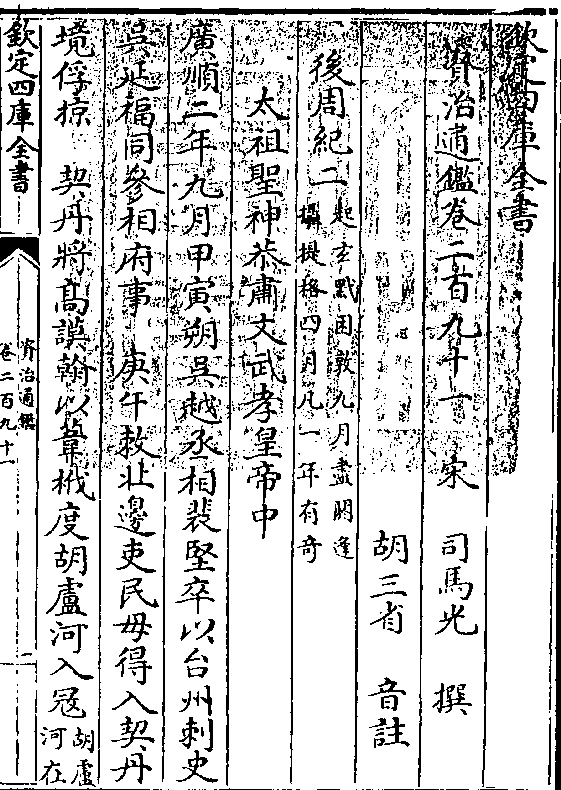 欽定四庫全書
資治通鑑卷二百九十一 宋 司馬光 撰
胡三省 音註
後周紀二起玄黓困敦九月盡閼逢
攝提格四月凡一年有奇
太祖聖神恭肅文武孝皇帝中
廣順二年九月甲寅朔吳越丞相裴堅卒以台州刺史
吳延福同參相府事 庚午敕北邊吏民毋得入契丹
境俘掠 契丹將高謨翰以葦栰度胡盧河入冦胡盧
河在
欽定四庫全書
資治通鑑
卷二百九十一
一